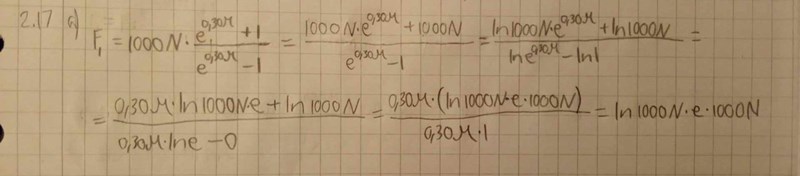 2.17 a) F₁ = 1000N · (e^{0,30μ} + 1)/(e^{0,30μ} - 1) = (1000N · e^{0,30μ} + 1000N)/(e^{0,30μ} - 1) = (ln1000N·e^{0,30μ} + ln1000N)/(lne^{0,30μ} - ln1) =
= (0,30μ · ln1000N·e + ln1000N)/(0,30μ · lne - 0) = (0,30μ · (ln1000N·e·1000N))/(0,30μ · 1) = ln1000N · e · 1000N